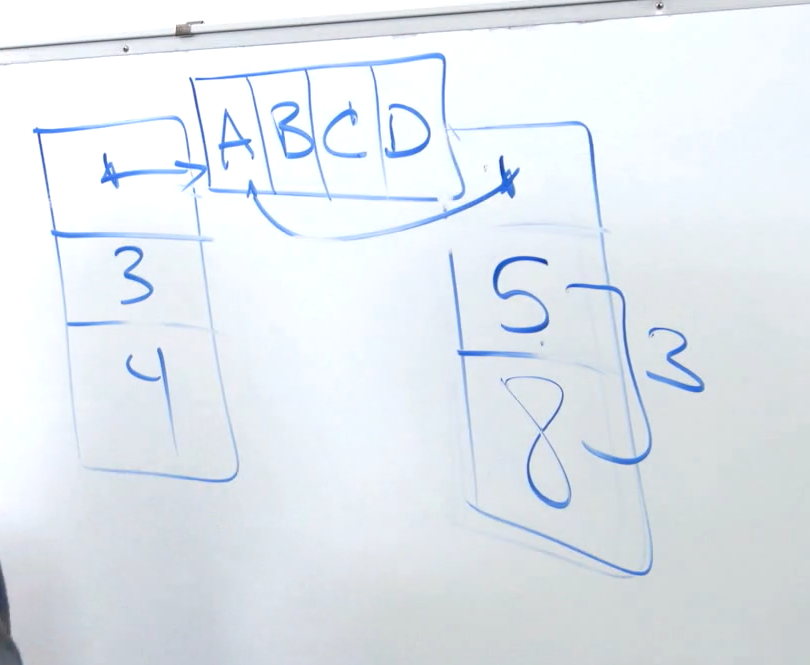 A B C D
3
4
5
8
3